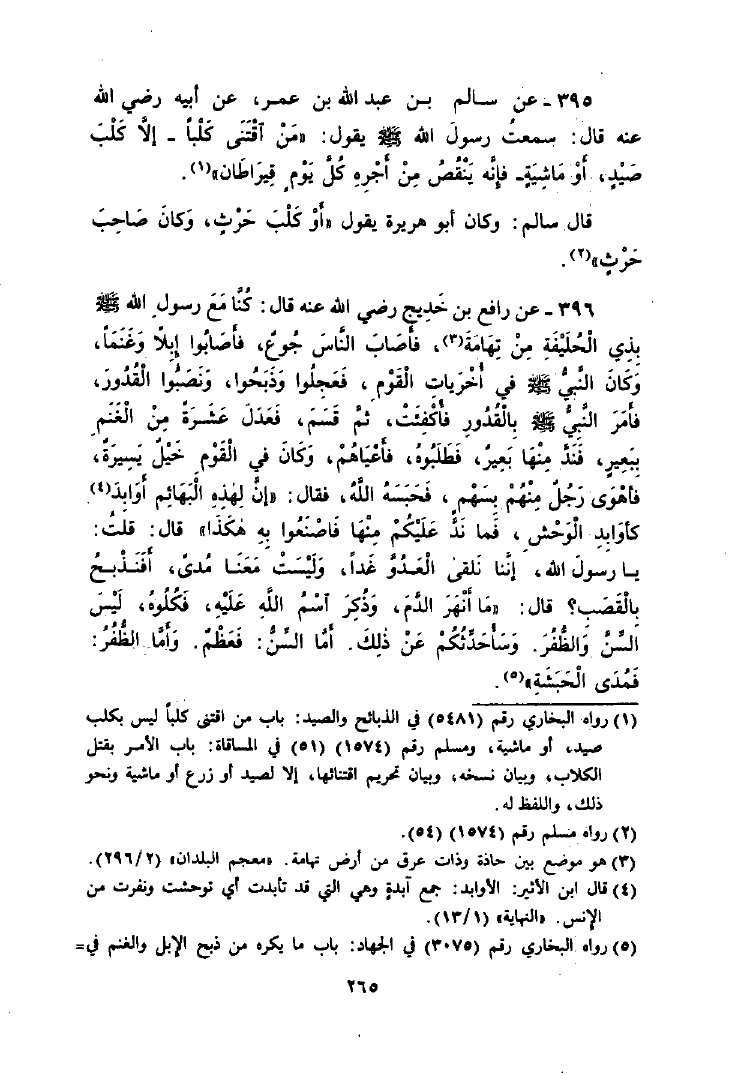 ٣٩٥ ـ عن سالم بن عبد الله بن عمر، عن أبيه رضي الله
عنه قال: سمعتُ رسولَ الله ﷺ يقول: «مَنْ آقْتَنَى كَلْباً ـ إلَّا كَلْبَ
صَيْدٍ، أَوْ مَاشِيَةٍ ـ فإنَّه يَنْقُصُ مِنْ أَجْرِهِ كُلَّ يَوْمٍ قِيرَاطَان»(١).
قال سالم: وكان أبو هريرة يقول «أَوْ كَلْبَ حَرْثٍ، وَكَانَ صَاحِبَ
حَرْثٍ»(٢).
٣٩٦ ـ عن رافع بن خَديج رضي الله عنه قال: كُنَّا مَعَ رسول الله ﷺ
بِذي الْحُلَيْفَةِ مِنْ تِهَامَةَ(٣)، فأَصَابَ النَّاسَ جُوعٌ، فأَصَابُوا إبِلًا وَغَنَماً،
وَكَانَ النَّبيُّ ﷺ في أُخْرَيَاتِ الْقَوْمِ، فَعَجِلُوا وَذَبَحُوا، وَنَصَبُوا الْقُدُورَ،
فأَمَرَ النَّبيُّ ﷺ بِالْقُدُورِ فأُكْفِئَتْ، ثمَّ قَسَمَ، فَعَدَلَ عَشَرَةً مِنْ الْغَنَمِ
بِبَعِيرٍ، فَنَدَّ مِنْهَا بَعِيرٌ، فَطَلَبُوهُ، فأَعْيَاهُمْ، وَكَانَ في الْقَوْمِ خَيْلٌ يَسِيرَةٌ،
فأَهْوَى رَجُلٌ مِنْهُمْ بِسَهْمٍ، فَحَبَسَهُ اللَّهُ، فقال: «إنَّ لِهٰذِهِ الْبَهَائِمِ أَوَابِدَ(٤)
كأَوَابِدِ الْوَحْشِ، فَما نَدَّ عَلَيْكُمْ مِنْهَا فَاصْنَعُوا بِهِ هٰكَذَا» قال: قلتُ:
يا رسولَ الله، إنَّنا نَلقىٰ الْعَدُوَّ غَداً، وَلَيْسَتْ مَعَنَا مُدىً، أَفَنَذْبَحُ
بِالْقَصَبِ؟ قال: «مَا أَنْهَرَ الدَّمَ، وَذُكِرَ آسْمُ اللَّهِ عَلَيْهِ، فَكُلُوهُ، لَيْسَ
السِّنَّ وَالظُّفُرَ. وَسَأُحَدِّثُكُمْ عَنْ ذٰلِكَ. أَمَّا السِّنُّ: فَعَظْمٌ. وَأَمَّا الظُّفُرُ:
فَمُدَى الْحَبَشَةِ»(٥).
(١) رواه البخاري رقم (٥٤٨١) في الذبائح والصيد: باب من اقتنى كلباً ليس بكلب
صيد، أو ماشية، ومسلم رقم (١٥٧٤) (٥١) في المساقاة: باب الأمر بقتل
الكلاب، وبيان نسخه، وبيان تحريم اقتنائها، إلا لصيد أو زرع أو ماشية ونحو
ذلك، واللفظ له.
(٢) رواه مسلم رقم (١٥٧٤) (٥٤).
(٣) هو موضع بين حاذة وذات عرق من أرض تهامة. «معجم البلدان» (٢/‏٢٩٦).
(٤) قال ابن الأثير: الأوابد: جمع آبدةٍ وهي التي قد تأبدت أي توحشت ونفرت من
الإنس. «النهاية» (١/‏١٣).
(٥) رواه البخاري رقم (٣٠٧٥) في الجهاد: باب ما يكره من ذبح الإبل والغنم في=
٢٦٥